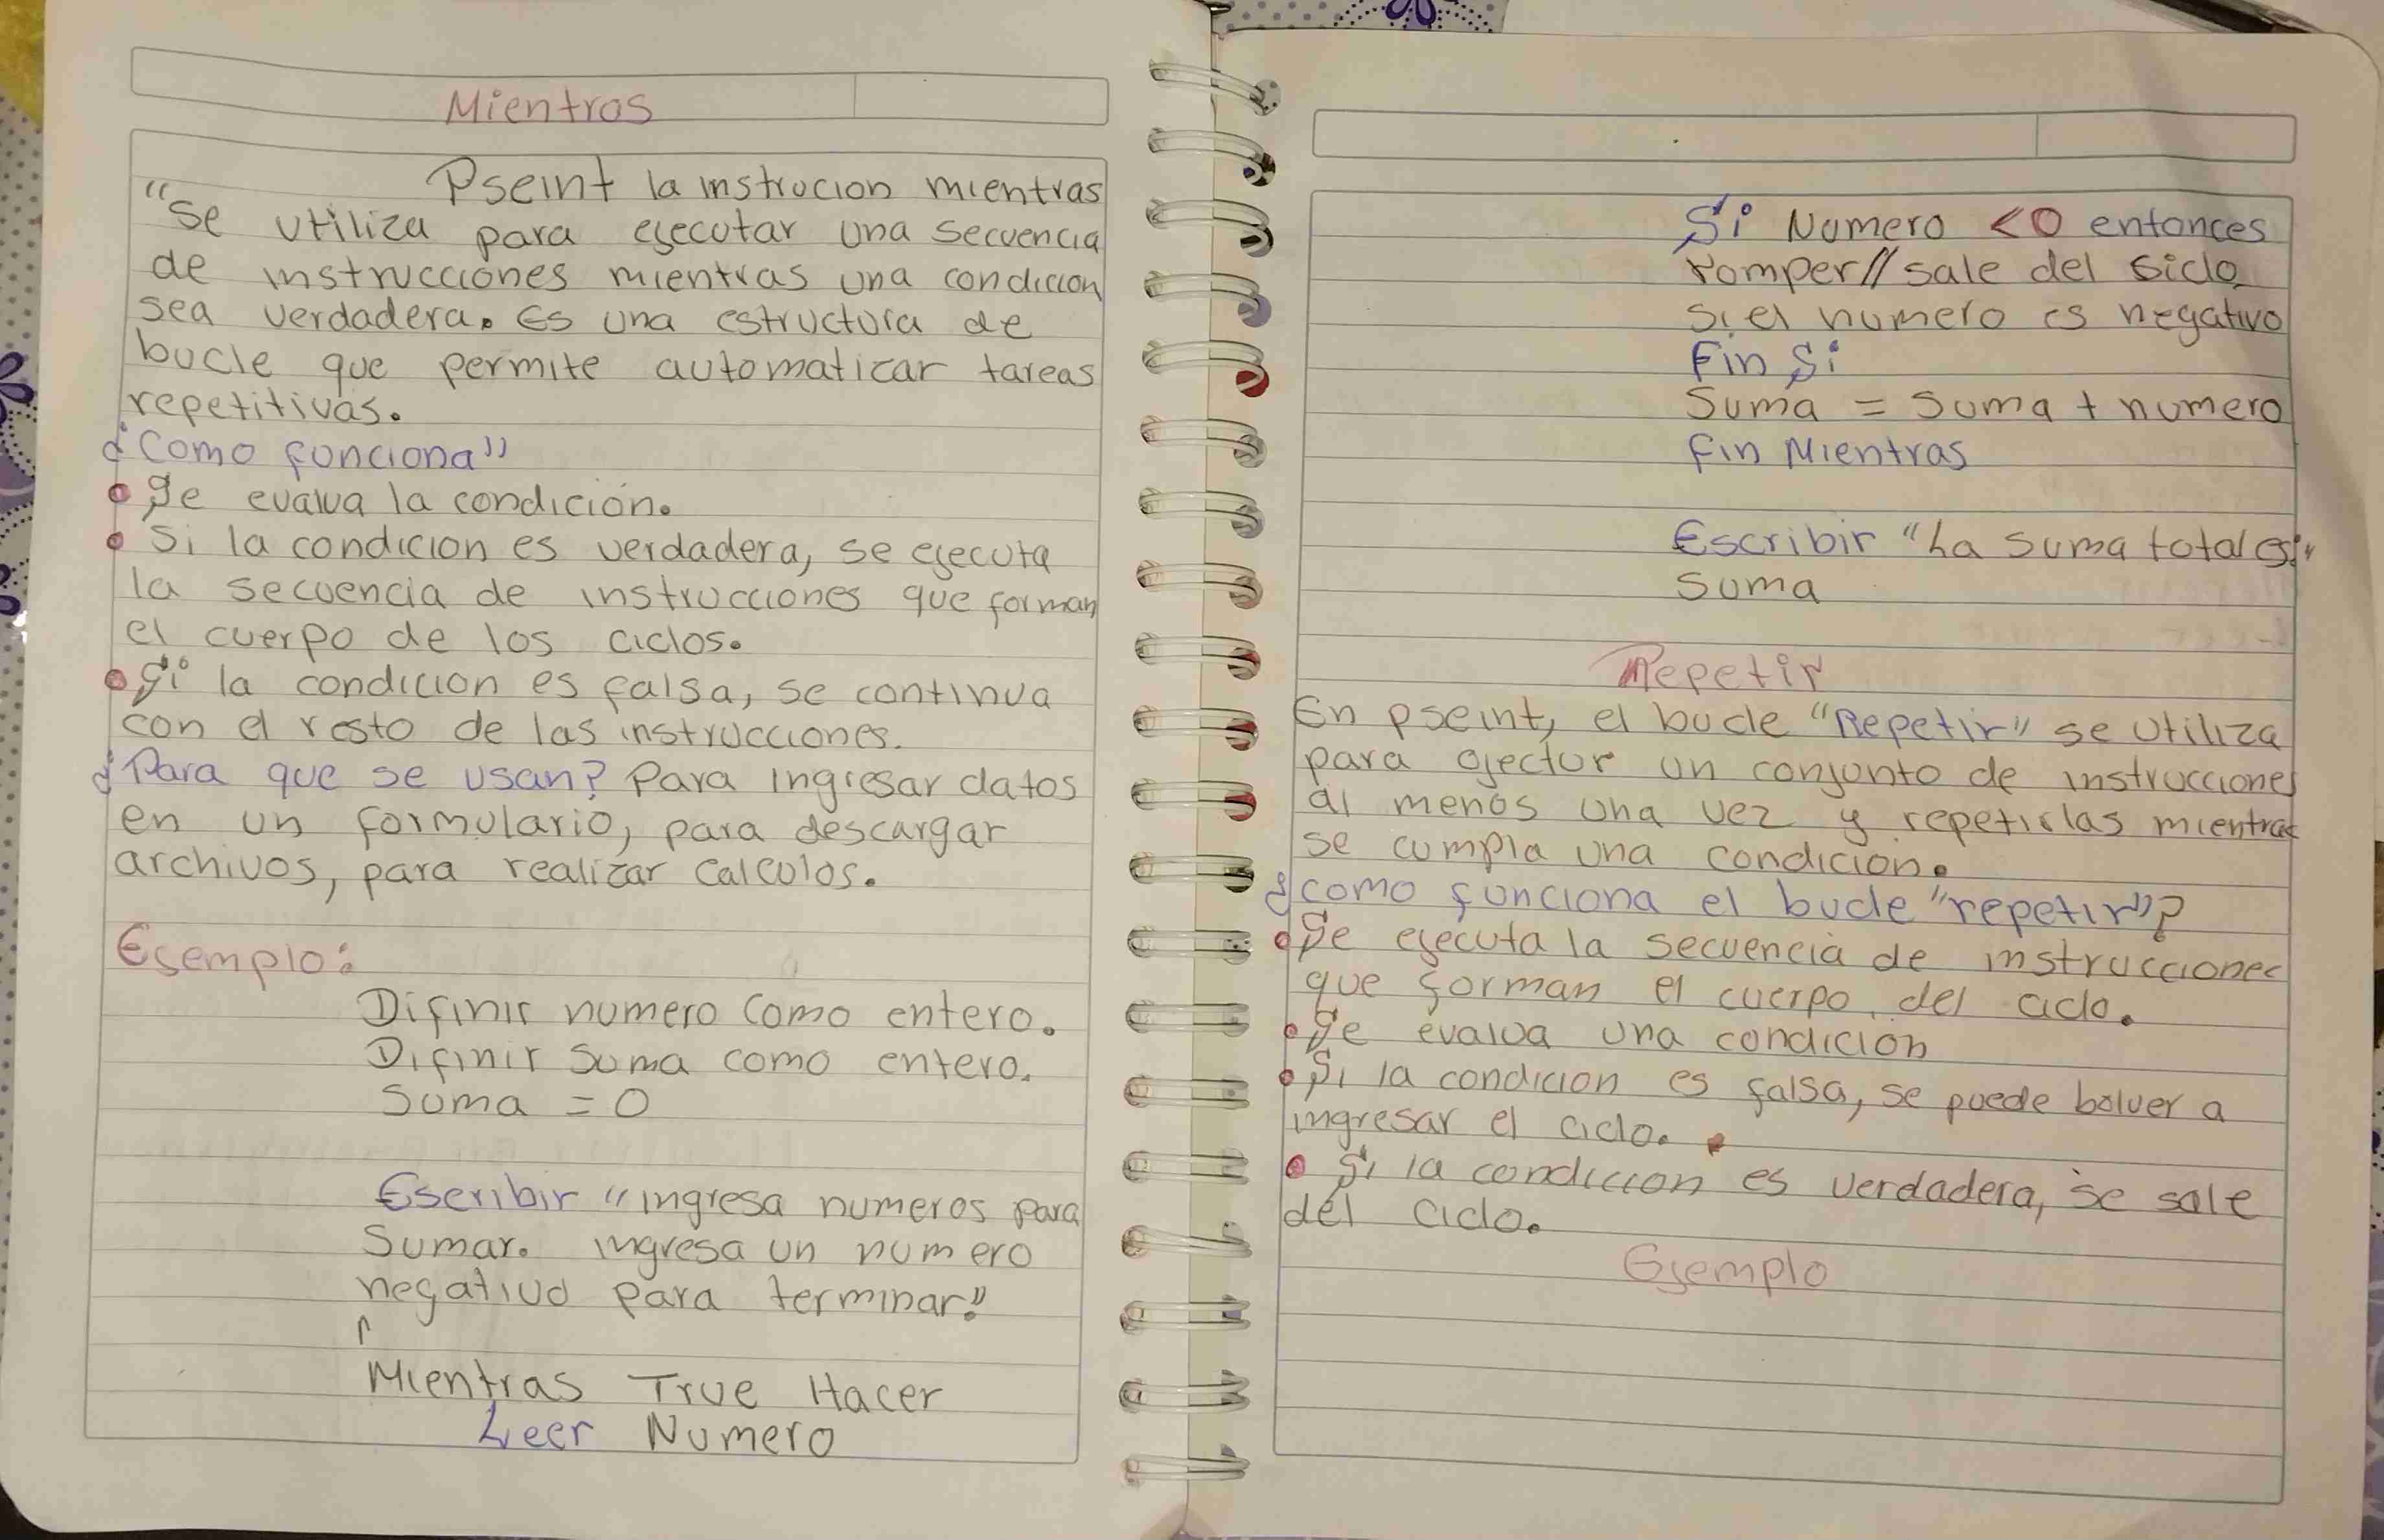 Mientras
Pseint la instrucion mientras
"se utiliza para ejecutar una secuencia
de instrucciones mientras una condicion
sea verdadera. Es una estructura de
bucle que permite automatizar tareas
repetitivas.
¿"Como funciona"
• Se evalua la condición.
• Si la condicion es verdadera, se ejecuta
la secuencia de instrucciones que forman
el cuerpo de los ciclos.
• Si la condicion es falsa, se continua
con el resto de las instrucciones.
¿Para que se usan? Para ingresar datos
en un formulario, para descargar
archivos, para realizar calculos.
Ejemplo:
Difinir numero como entero.
Difinir suma como entero.
Suma = 0
Escribir "ingresa numeros para
Sumar. ingresa un numero
negativo para terminar."
Mientras True Hacer
Leer Numero
Si Numero <0 entonces
romper// sale del siclo
si el numero es negativo
Fin Si
Suma = suma + numero
Fin Mientras
Escribir "La suma total es:"
suma
Repetir
En pseint, el bucle "Repetir" se utiliza
para ejectur un conjunto de instrucciones
al menos una vez y repetirlas mientras
se cumpla una condición.
¿como funciona el bucle "repetir"?
• Se ejecuta la secuencia de instrucciones
que forman el cuerpo del ciclo.
• Se evalua una condición
• Si la condicion es falsa, se puede bolver a
ingresar el ciclo.
• Si la condicion es verdadera, se sale
del ciclo.
Ejemplo